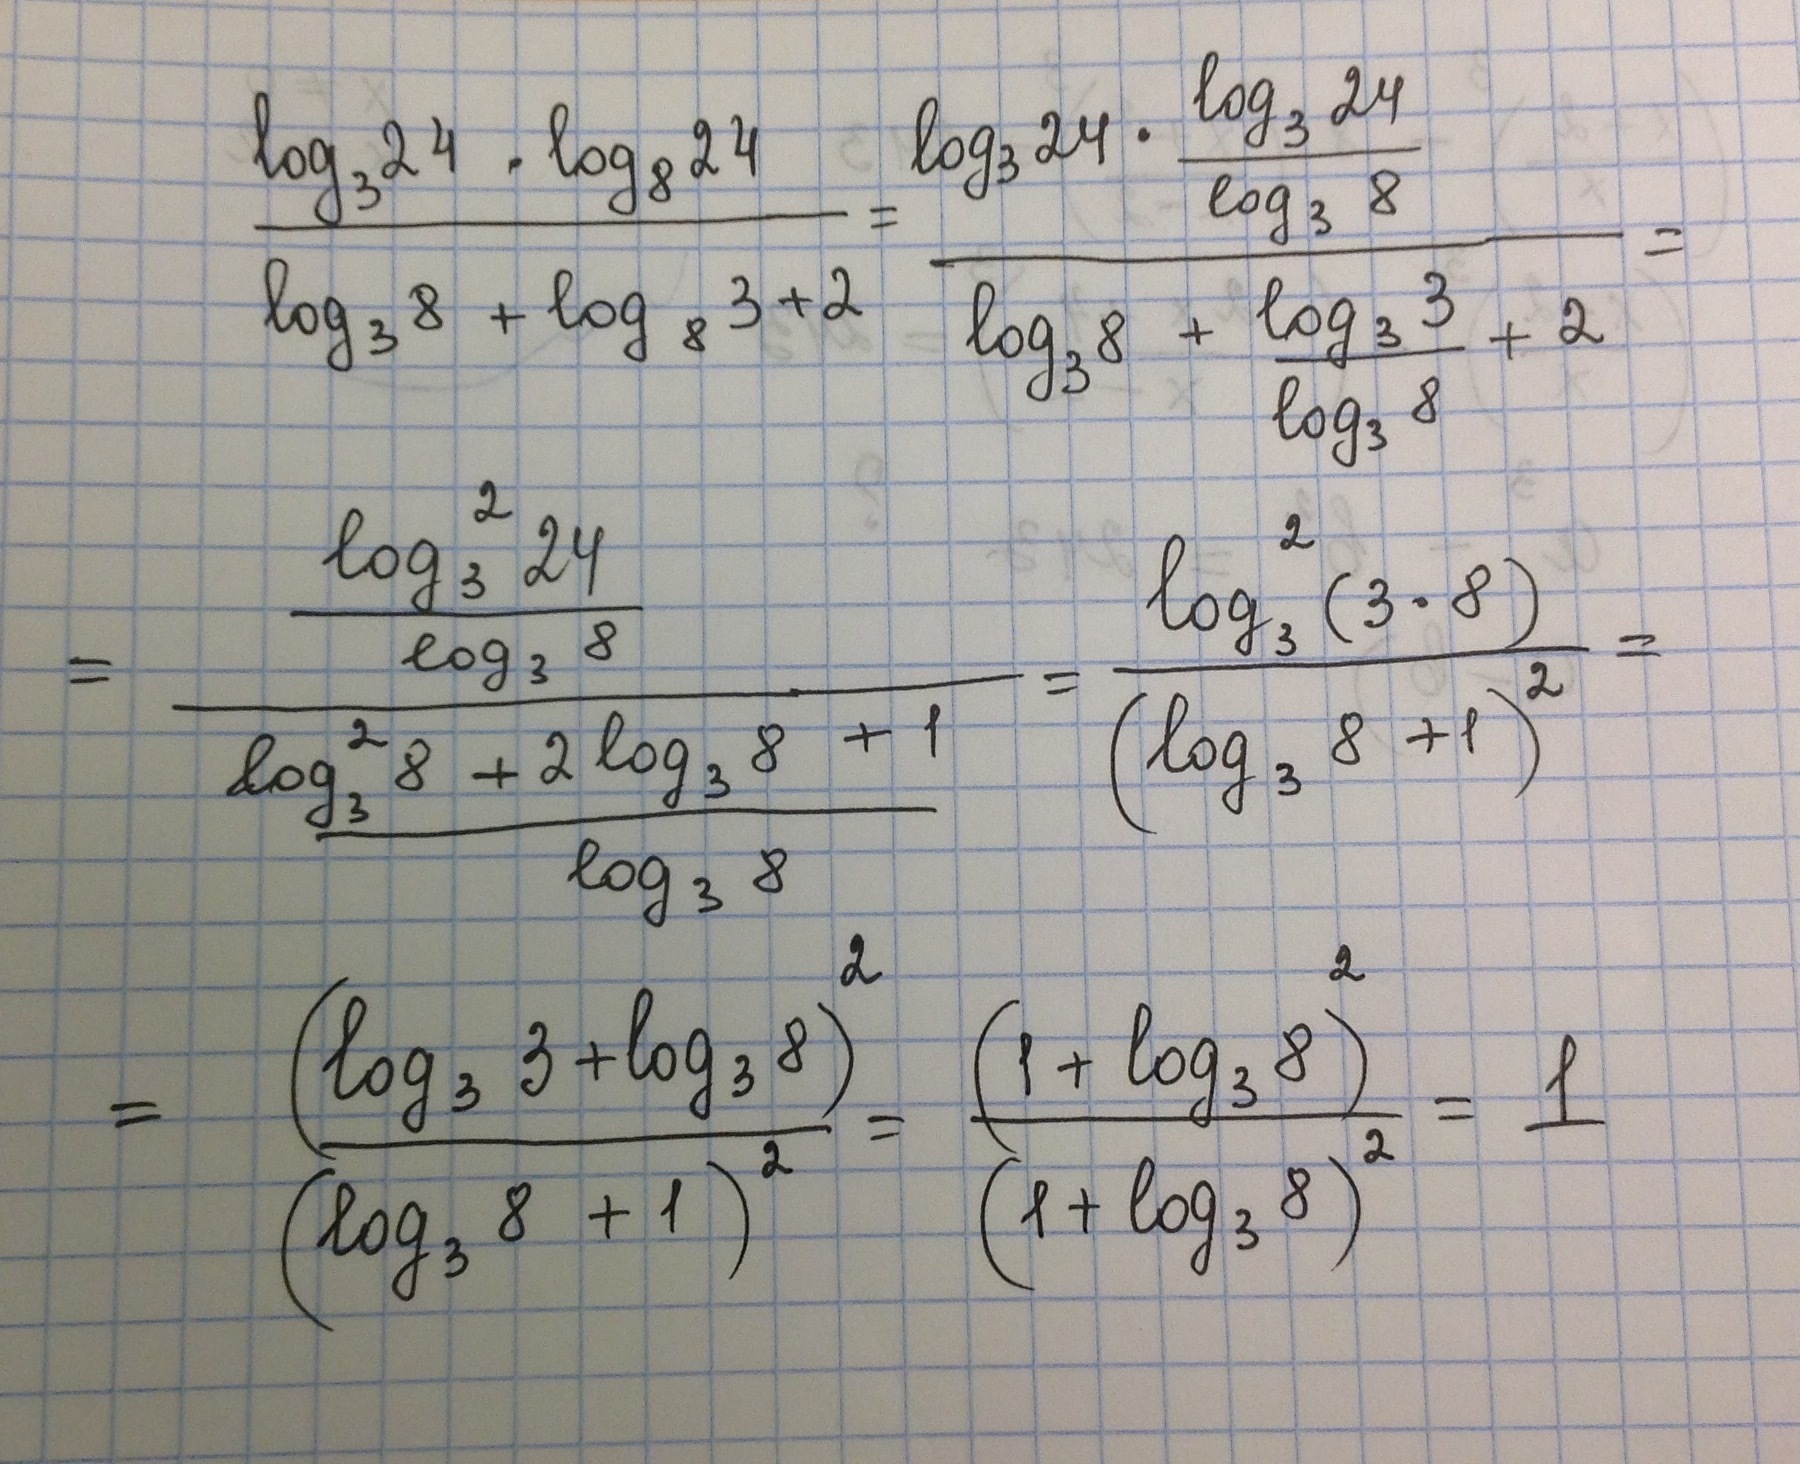 (log₃24 · log₈24)/(log₃8 + log₈3 + 2) = (log₃24 · (log₃24)/(log₃8))/(log₃8 + (log₃3)/(log₃8) + 2) =
= ((log₃²24)/(log₃8))/((log₃²8 + 2log₃8 + 1)/(log₃8)) = (log₃²(3·8))/((log₃8 + 1)²) =
= ((log₃3 + log₃8)²)/((log₃8 + 1)²) = ((1 + log₃8)²)/((1 + log₃8)²) = 1